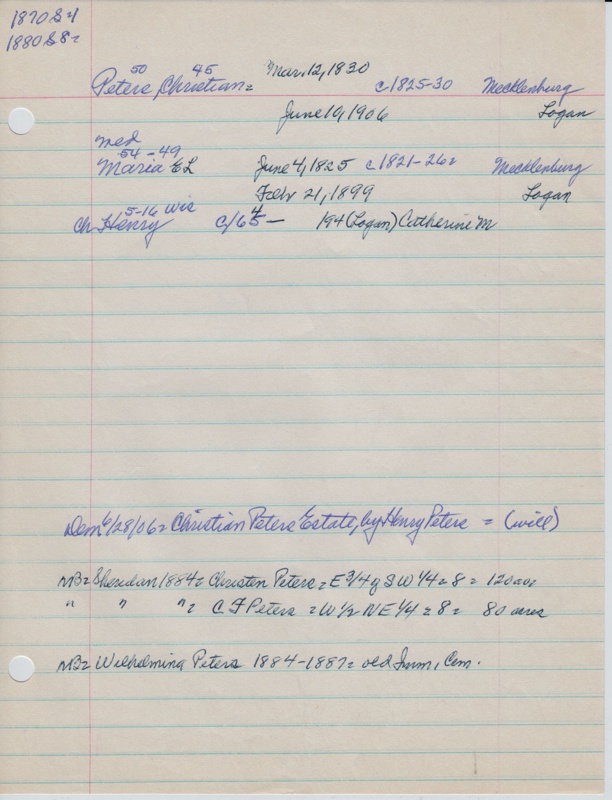 1870 S=1
1880 S 8=
50 45 Mar. 12, 1830
Peters, Christian = c1825-30 Mecklenburg
June 10, 1906 Logan
med
54-49
Maria E L June 4, 1825 c1821-26= Mecklenburg
Febr 21, 1899 Logan
5-16 Wis 4
Ch Henry c/65 — 194 (Logan) Catherine M
Dem 6/28/06 = Christian Peters Estate, by Henry Peters = (will)
NB= Sheridan 1884= Christen Peters = E 3/4 of SW 1/4 = 8 = 120 acre
" " "= C F Peters = W 1/2 NE 1/4 = 8 = 80 acres
NB= Wilhelmina Peters 1884-1887= old Imm. Cem.